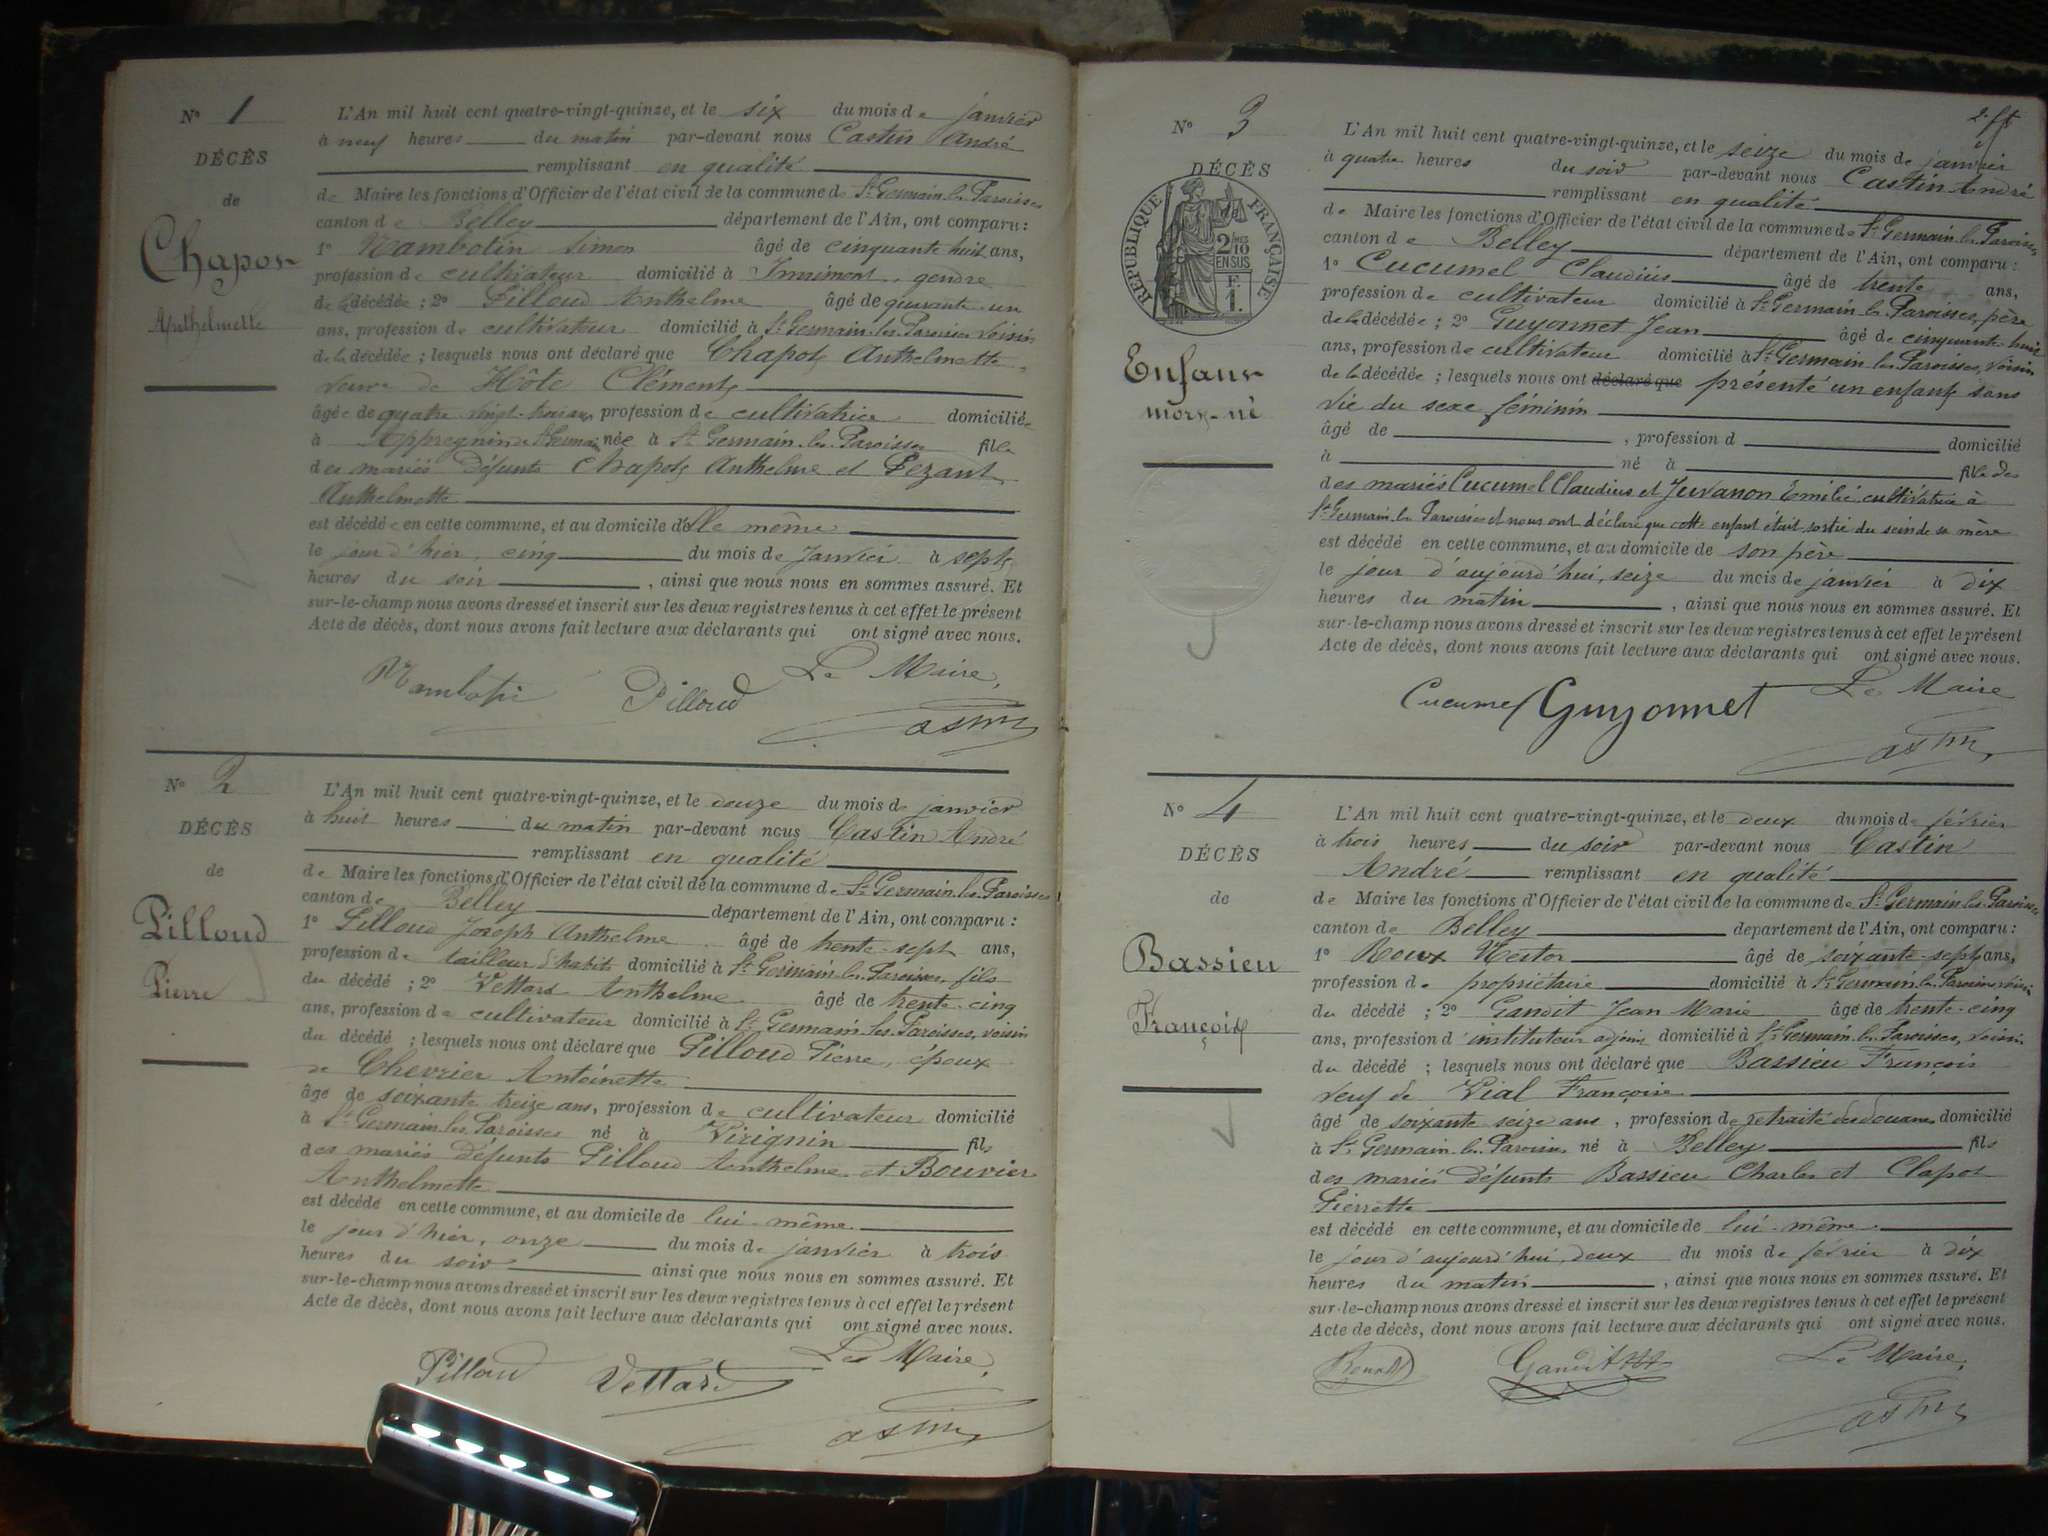 N° 1
DÉCÈS
de
Chapot
Anthelmette
L'An mil huit cent quatre-vingt-quinze, et le six du mois de janvier
à neuf heures du matin par-devant nous Castin André
remplissant en qualité
de Maire les fonctions d'Officier de l'état civil de la commune de St Germain les Paroisses
canton de Belley département de l'Ain, ont comparu :
1° Simon âgé de cinquante huit ans,
profession de cultivateur domicilié à Innimont, gendre
de la décédée ; 2° Pilloud Anthelme âgé de quarante un
ans, profession de cultivateur domicilié à St Germain les Paroisses voisin
de la décédée ; lesquels nous ont déclaré que Chapot Anthelmette
veuve de Hôte Clément
âgée de quatre vingt profession de cultivatrice domiciliée
à Appregnin St Germain née à St Germain les Paroisses fille
des mariés défunts Chapot Anthelme et Pezant
Anthelmette
est décédée en cette commune, et au domicile d'elle même
le jour d'hier, cinq du mois de Janvier à sept
heures du soir , ainsi que nous nous en sommes assuré. Et
sur-le-champ nous avons dressé et inscrit sur les deux registres tenus à cet effet le présent
Acte de décès, dont nous avons fait lecture aux déclarants qui ont signé avec nous.
Le Maire,
Pilloud
Castin
N° 2
DÉCÈS
de
Pilloud
Pierre
L'An mil huit cent quatre-vingt-quinze, et le douze du mois de janvier
à huit heures du matin par-devant nous Castin André
remplissant en qualité
de Maire les fonctions d'Officier de l'état civil de la commune de St Germain les Paroisses
canton de Belley département de l'Ain, ont comparu :
1° Pilloud Joseph Anthelme âgé de trente-sept ans,
profession de tailleur d'habits domicilié à St Germain les Paroisses, fils
du décédé ; 2° Vettard Anthelme âgé de trente-cinq
ans, profession de cultivateur domicilié à St Germain les Paroisses, voisin
du décédé ; lesquels nous ont déclaré que Pilloud Pierre, époux
de Chevrier Antoinette
âgé de soixante treize ans, profession de cultivateur domicilié
à St Germain les Paroisses né à Virignin fils
des mariés défunts Pilloud Anthelme et Bouvier
Anthelmette
est décédé en cette commune, et au domicile de lui-même
le jour d'hier, onze du mois de janvier à trois
heures du soir ainsi que nous nous en sommes assuré. Et
sur-le-champ nous avons dressé et inscrit sur les deux registres tenus à cet effet le présent
Acte de décès, dont nous avons fait lecture aux déclarants qui ont signé avec nous.
Le Maire,
Pilloud Vettard
Castin
N° 3
DÉCÈS
RÉPUBLIQUE FRANÇAISE
2/10 EN SUS
F. 1.
Enfant
mort-né
L'An mil huit cent quatre-vingt-quinze, et le seize du mois de janvier
à quatre heures du soir par-devant nous Castin André
remplissant en qualité
de Maire les fonctions d'Officier de l'état civil de la commune de St Germain les Paroisses
canton de Belley département de l'Ain, ont comparu :
1° Cucumel Claudius âgé de trente ans,
profession de cultivateur domicilié à St Germain les Paroisses, père
de la décédée ; 2° Guyonnet Jean âgé de cinquante-huit
ans, profession de cultivateur domicilié à St Germain les Paroisses, voisin
de la décédée ; lesquels nous ont déclaré que présenté un enfant sans
vie du sexe féminin
âgé de , profession d domicilié
à né à fille des
des mariés Cucumel Claudius et Juvanon Emélie cultivatrice à
St Germain les Paroisses et nous ont déclaré que cette enfant était sortie du sein de sa mère
est décédé en cette commune, et au domicile de son père
le jour d'aujourd'hui, seize du mois de janvier à dix
heures du matin , ainsi que nous nous en sommes assuré. Et
sur-le-champ nous avons dressé et inscrit sur les deux registres tenus à cet effet le présent
Acte de décès, dont nous avons fait lecture aux déclarants qui ont signé avec nous.
Le Maire
Cucumel Guyonnet
Castin
N° 4
DÉCÈS
de
Bassieu
François
L'An mil huit cent quatre-vingt-quinze, et le deux du mois de février
à trois heures du soir par-devant nous Castin
André remplissant en qualité
de Maire les fonctions d'Officier de l'état civil de la commune de St Germain les Paroisses
canton de Belley département de l'Ain, ont comparu :
1° Roux Nestor âgé de soixante-sept ans,
profession de propriétaire domicilié à St Germain les Paroisses voisin
du décédé ; 2° Gandit Jean Marie âgé de trente-cinq
ans, profession d'instituteur adjoint domicilié à St Germain les Paroisses, voisin
du décédé ; lesquels nous ont déclaré que Bassieu François
veuf de Vial Françoise
âgé de soixante seize ans , profession de retraité des douanes domicilié
à St Germain les Paroisses né à Belley fils
des mariés défunts Bassieu Charles et Clapot
Pierrette
est décédé en cette commune, et au domicile de lui-même
le jour d'aujourd'hui, deux du mois de février à dix
heures du matin , ainsi que nous nous en sommes assuré. Et
sur-le-champ nous avons dressé et inscrit sur les deux registres tenus à cet effet le présent
Acte de décès, dont nous avons fait lecture aux déclarants qui ont signé avec nous.
Le Maire,
Gandit
Castin